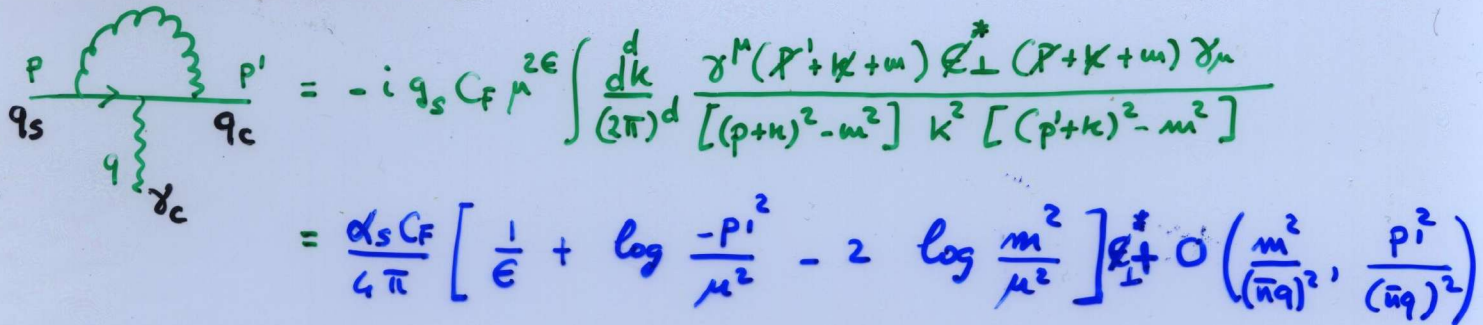 p p'
q_s q_c
q γ_c
= - i g_s C_F μ^{2ε} ∫ \frac{d^d k}{(2π)^d} \frac{γ^μ (p̸' + k̸ + m) ε̸^*_⊥ (p̸ + k̸ + m) γ_μ}{[(p+k)^2 - m^2] k^2 [(p'+k)^2 - m^2]}
= \frac{α_s C_F}{4π} [ \frac{1}{ε} + log \frac{-p'^2}{μ^2} - 2 log \frac{m^2}{μ^2} ] ε̸^*_⊥ + O ( \frac{m^2}{(n̄q)^2}, \frac{p'^2}{(n̄q)^2} )